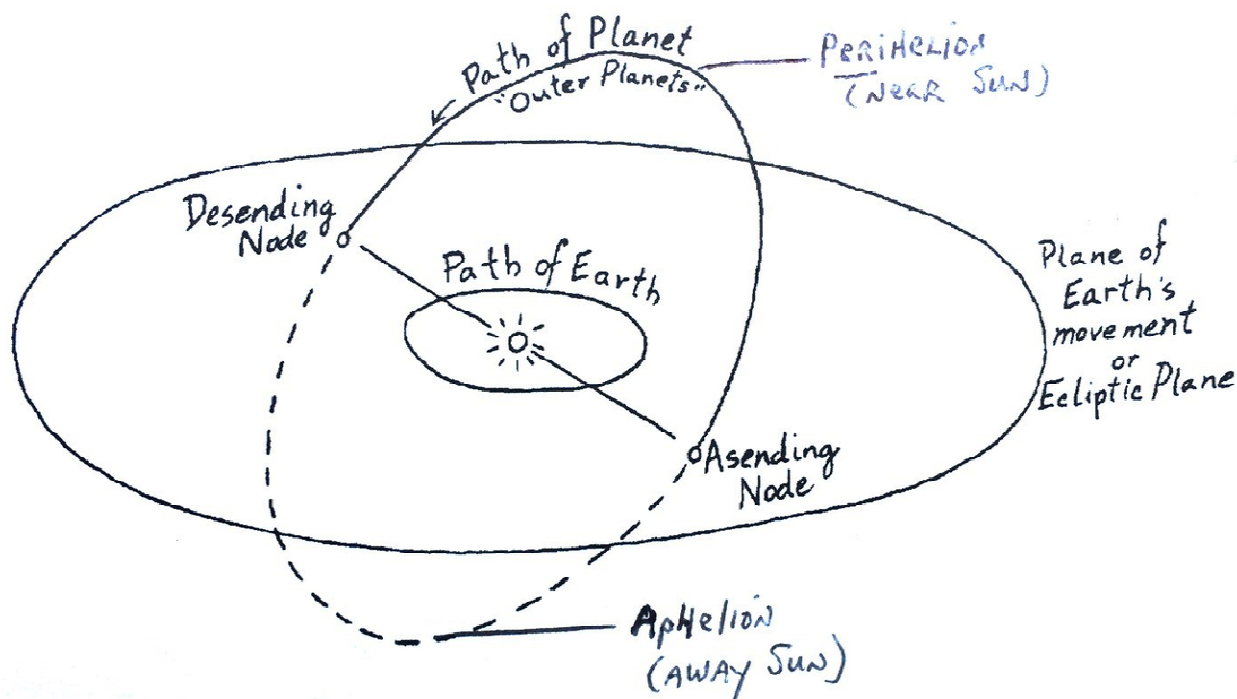 Path of Planet
"Outer Planets"
PERIHELION
(NEAR SUN)
Desending
Node
Path of Earth
Plane of
Earth's
movement
or
Ecliptic Plane
Asending
Node
APHELION
(AWAY SUN)